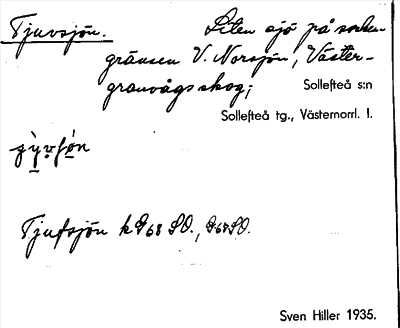 Tjuvsjön. Liten sjö på socken
gränsen V. Norsjön, Väster-
granvågs skog;
Sollefteå s:n
Sollefteå tg., Västernorrl. l.
Tjufsjön k G68 SO., G68 SO.
Sven Hiller 1935.